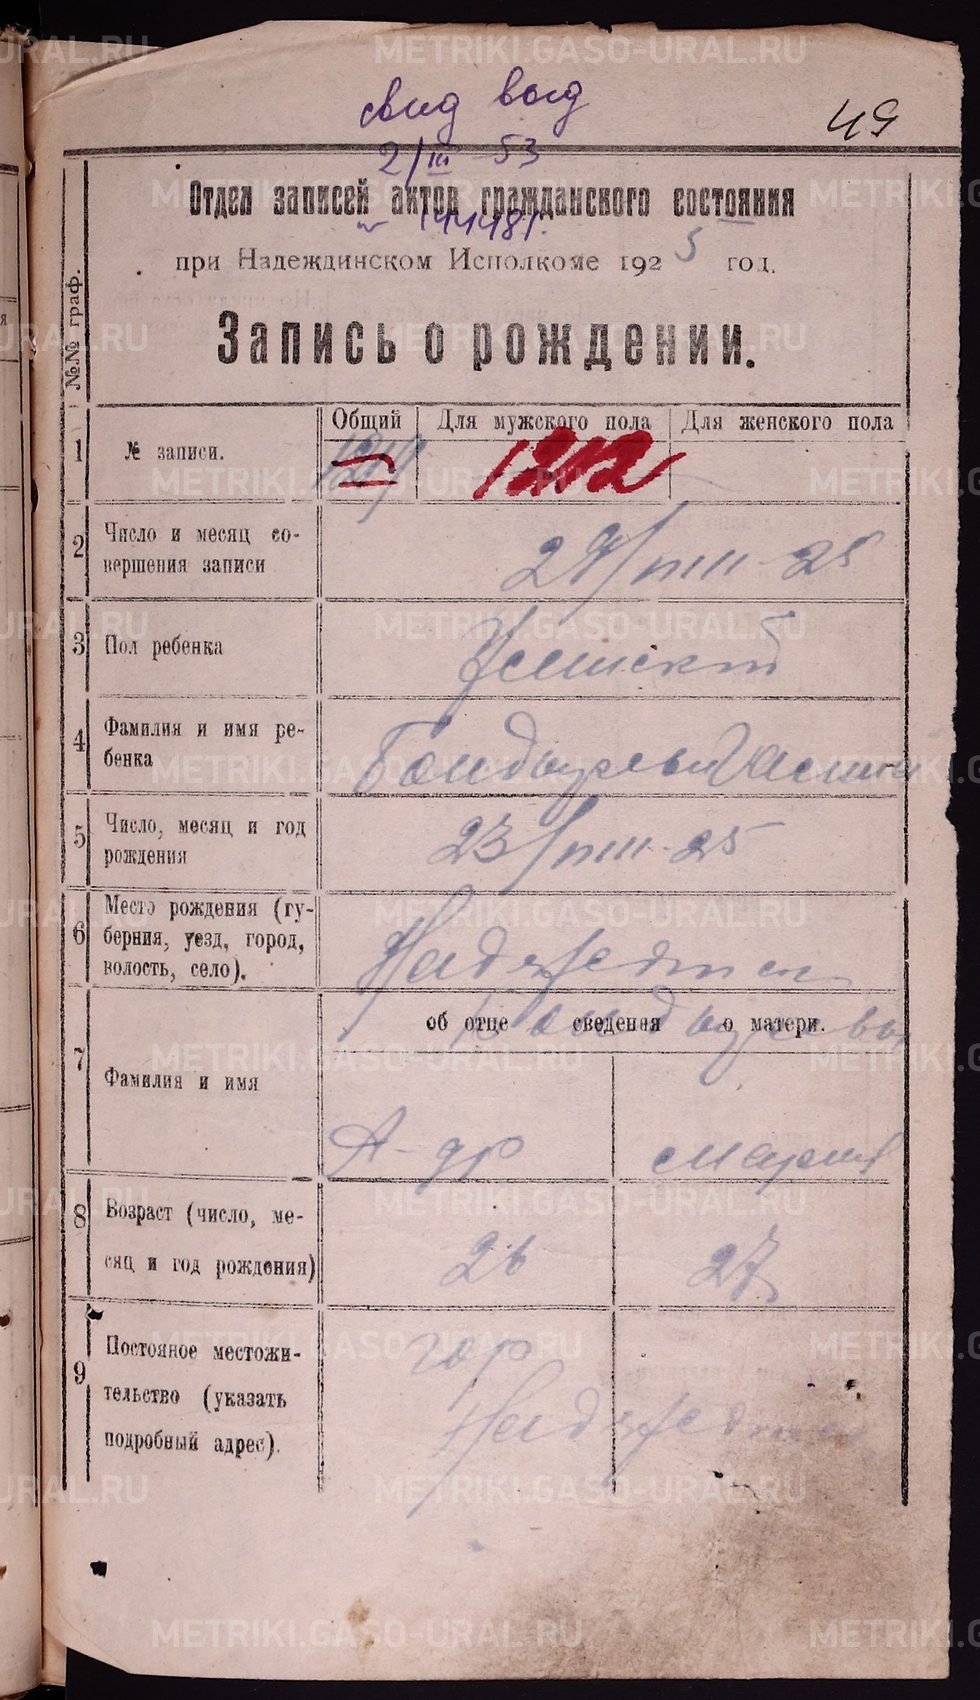 свид выд
49
2/III 53
Отдел записей актов гражданского состояния
№ 144481.
при Надеждинском Исполкоме 1925 год.
Запись о рождении.
№№ граф.
Общий Для мужского пола Для женского пола
1 № записи. 1212
2 Число и месяц со-
вершения записи
27/VIII-25
3 Пол ребенка Женский
4 Фамилия и имя ре-
бенка
5 Число, месяц и год
рождения
23/VIII-25
6 Место рождения (гу-
берния, уезд, город,
волость, село).
Надеждинск
об отце сведения о матери.
7 Фамилия и имя
А-др Мария
8 Возраст (число, ме-
сяц и год рождения)
26 27
9 Постояное местожи-
тельство (указать
подробный адрес).
гор
Надеждинск
METRIKI.GASO-URAL.RU